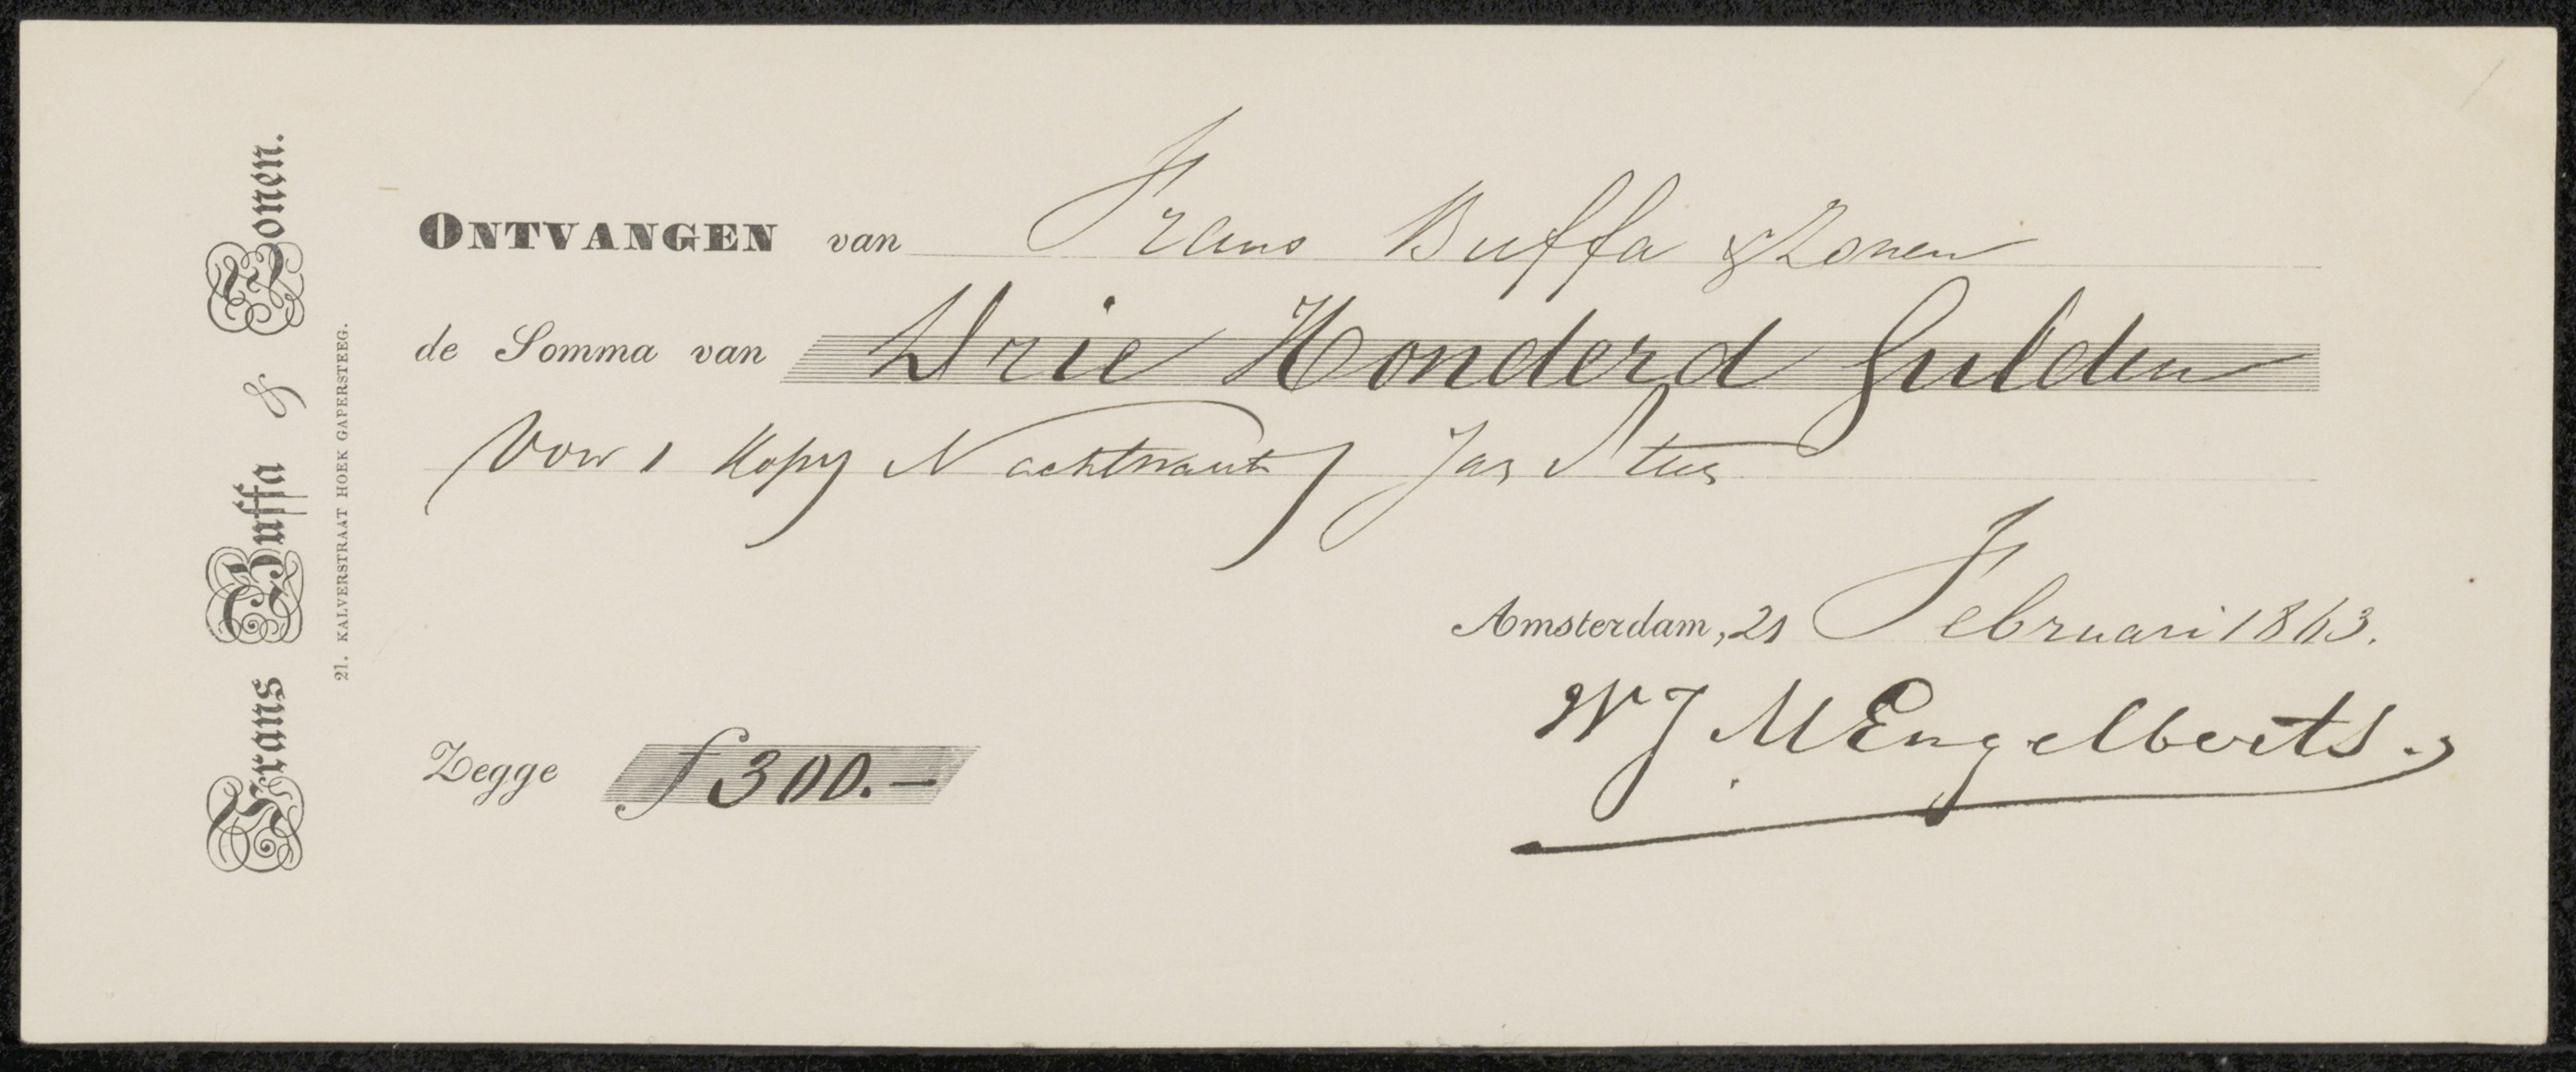 Frans Buffa & Zonen.
21. KALVERSTRAAT HOEK GAPERSTEEG.
ONTVANGEN van Frans Buffa & Zonen
de Somma van Drie Honderd Gulden
Voor 1 Kopy Nachtwacht Jan Steen
Amsterdam, 21 Februari 1863.
W J M Engelberts.
Zegge f 300.-